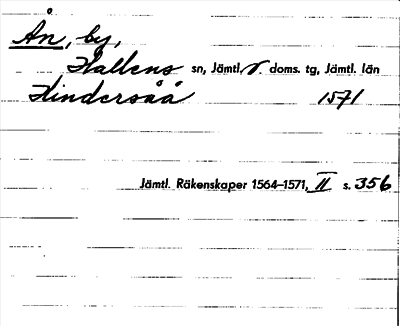 Ån, by,
Hallens sn, Jämtl. v. doms. tg, Jämtl. län
Hindersåå 1571
Jämtl. Räkenskaper 1564–1571, II s. 356